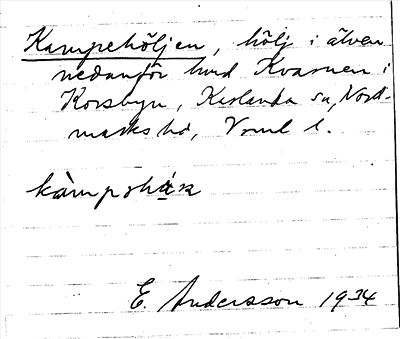 Kampehöljen, hölj i älven
nedanför Kvarnen i
Korsbyn, Karlanda sn, Nord-
marks hd, Vrml l.
E. Andersson 1934